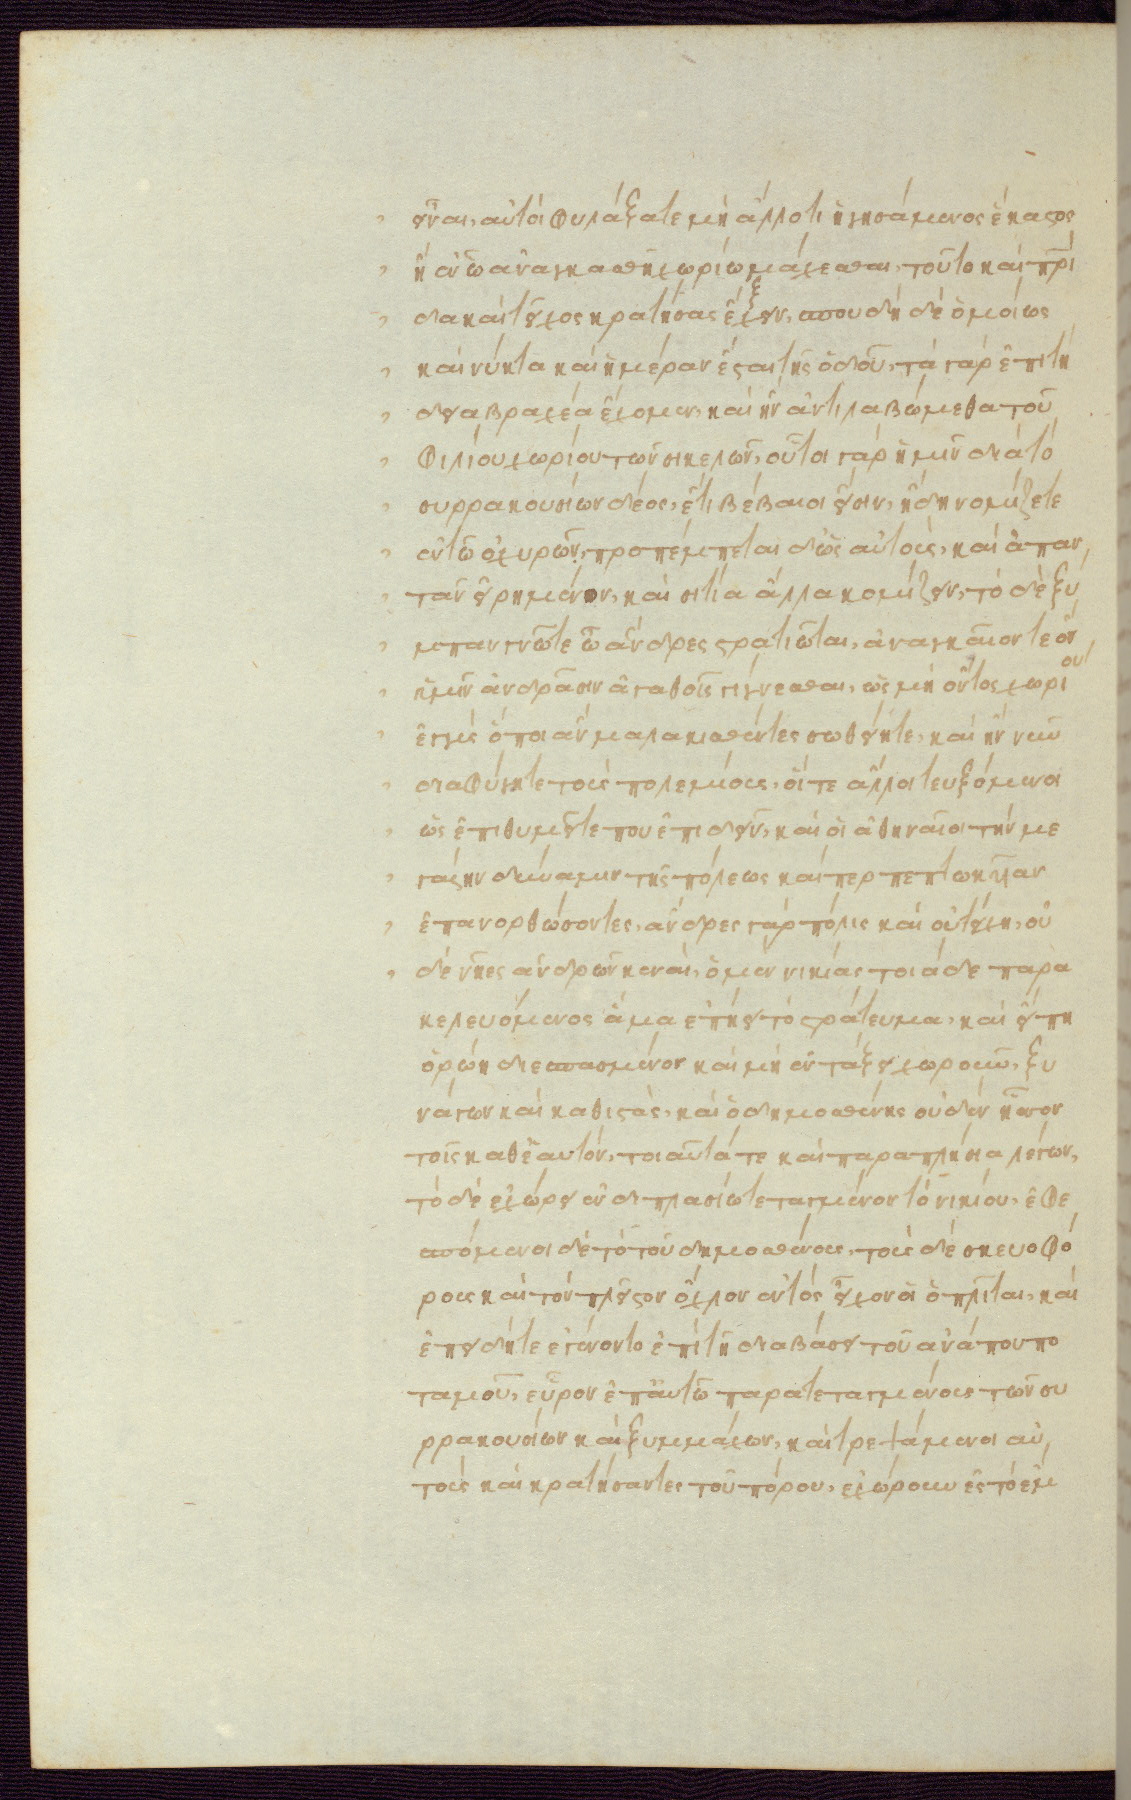 εἶναι, αὐτοὶ φυλάξατε μὴ ἄλλό τι ἡγησάμενος ἕκαστος
ἢ ἐν ᾧ ἀναγκασθῇ χωρίῳ μάχεσθαι, τοῦτο καὶ πατρί
δα καὶ τεῖχος κρατήσας ἕξειν, σπουδὴ δὲ ὁμοίως
καὶ νύκτα καὶ ἡμέραν ἔσται τῆς ὁδοῦ, τὰ γὰρ ἐπιτή
δεια βραχέα ἔχομεν, καὶ ἢν ἀντιλαβώμεθα τοῦ
φιλίου χωρίου τῶν σικελῶν, οὗτοι γὰρ ἡμῖν διὰ τὸ
συρρακουσίων δέος, ἔτι βέβαιοι εἰσὶν, ἤδη νομίζετε
ἐν τῶ ἐχυρῶ, προπέμπεται δ' ὡς αὐτοὺς, καὶ ἀπαν
τᾶν εἰρημένον, καὶ σιτία ἄλλα κομίζειν, τὸ δὲ ξύ
μπαν γνῶτε ὦ ἄνδρες στρατιῶται, ἀναγκαῖον τε ὂν
ἡμῖν ἀνδράσιν ἀγαθοῖς γίγνεσθαι, ὡς μὴ ὄντος χωρίου
ἐγγὺς ὅποι ἂν μαλακισθέντες σωθεῖητε, καὶ ἢν νῦν
διαφύγητε τοὺς πολεμίους, οἵ τε ἄλλοι τευξόμενοι
ὡς ἐπιθυμεῖτε που ἐπιδεῖν, καὶ οἱ ἀθηναῖοι τὴν με
γάλην δύναμιν τῆς πόλεως καίπερ πεπτωκυῖαν
ἐπανορθώσοντες, ἄνδρες γὰρ πόλις καὶ οὐ τείχη, οὐ
δὲ νῆες ἀνδρῶν κεναὶ, ὁ μὲν νικίας τοιάδε παρα
κελευόμενος ἅμα ἐπῄει τὸ στράτευμα, καὶ εἴ πη
ὁρώη διεσπασμένον καὶ μὴ ἐν τάξει χωροῦν, ξυ
νάγων καὶ καθιστὰς, καὶ ὁ δημοσθένης οὐδὲν ἧσσον
τοῖς καθ' ἑαυτὸν, τοιαῦτά τε καὶ παραπλήσια λέγων,
τὸ δὲ ἐχώρει ἐν διπλασίῳ τεταγμένον τὸ νικίου, ἐφε
πόμενοι δὲ τὸ τοῦ δημοσθένους, τοὺς δὲ σκευοφό
ρους καὶ τὸν πλεῖστον ὄχλον ἐντὸς εἶχον οἱ ὁπλῖται, καὶ
ἐπειδή τε ἐγένοντο ἐπὶ τῇ διαβάσει τοῦ ἀνάπου πο
ταμοῦ, εὗρον ἐπ' αὐτῶ παρατεταγμένους τῶν συ
ρρακουσίων καὶ ξυμμάχων, καὶ τρεψάμενοι αὐ
τοὺς καὶ κρατήσαντες τοῦ πόρου, ἐχώρουν ἐς τὸ ἔμ